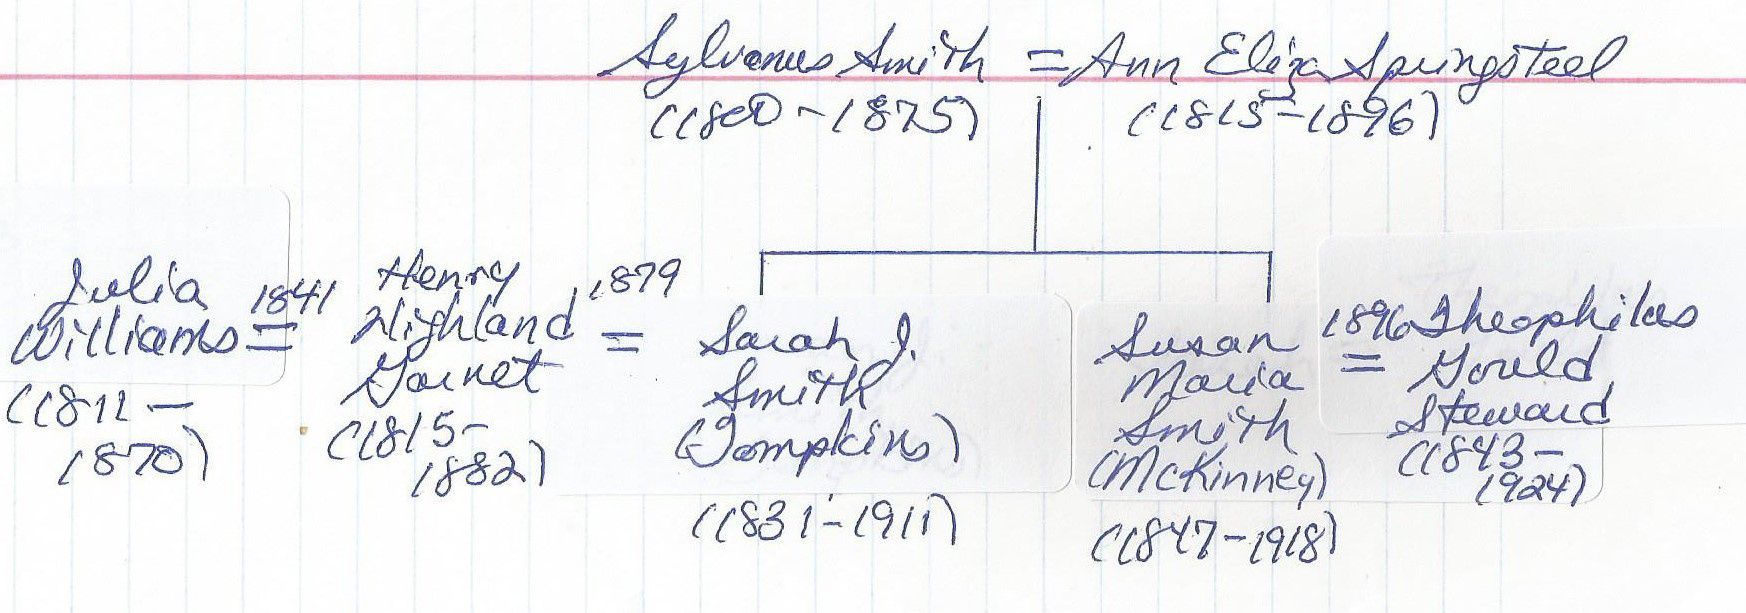 Sylvanus Smith = Ann Eliza Springsteel
(1800-1875) (1815-1896)
Julia
Williams
(1811-
1870)
1841
=
Henry
Highland
Garnet
(1815-
1882)
1879
=
Sarah J.
Smith
(Tompkins)
(1831-1911)
Susan
Maria
Smith
(McKinney)
(1847-1918)
1896
=
Theophilus
Gould
Steward
(1843-
1924)